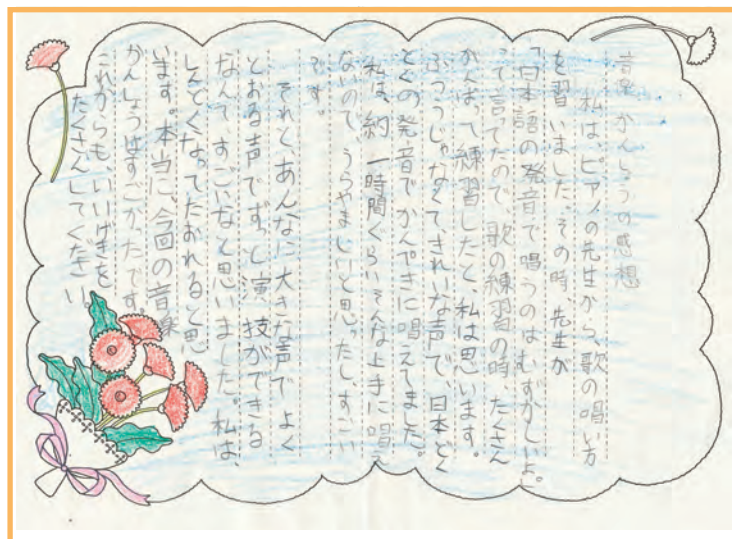 音楽かんしょうの感想
私は、ピアノの先生から、歌の唱い方
を習いました。その時、先生が
「日本語の発音で唱うのはむずかしいよ。」
って言てたので、歌の練習の時、たくさん
がんばって練習したと、私は思います。
ふつうじゃなくて、きれいな声で、日本どく
とくの発音でかんぺきに唱えてました。
私は、約一時間ぐらいそんな上手に唱え
ないので、うらやましいと思ったし、すごい
です。
それと、あんなに大きな声でよく
とおる声でずっと演技ができる
なんて、すごいなと思いました。私は、
しんどくなってたおれると思
います。本当に、今回の音楽
かんしょうはすごかったです。
これからも、いいげきを
たくさんしてください。